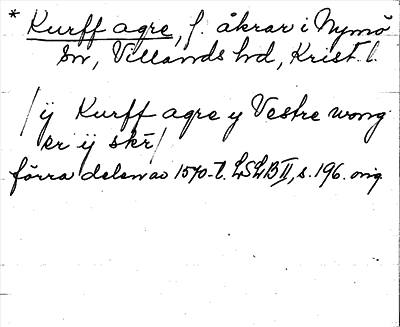 * Kurff agre, f. åkrar i Nymö
sn, Villands hd, Krist. l.
/ij Kurff agre y Vestre wong
er ij skr̄/
förra delen av 1570-t. LSLB II, s. 196. orig.